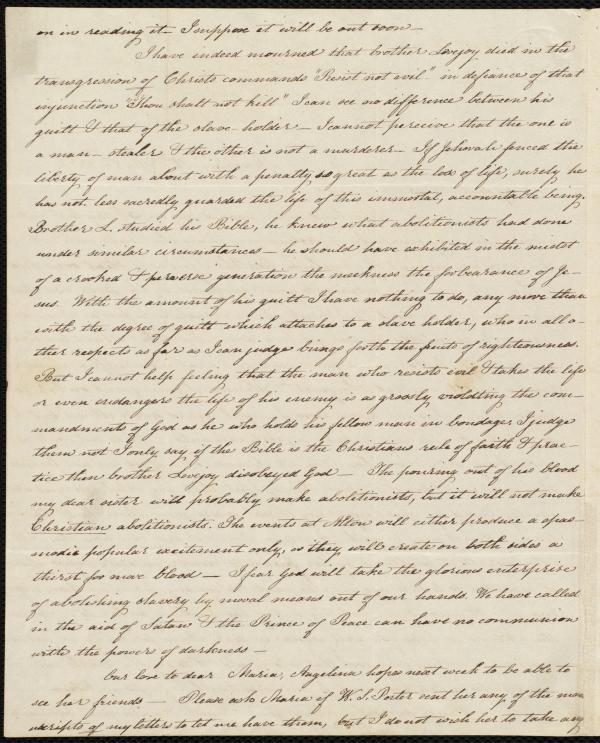 on in reading it – I suppose it will be out soon –
I have indeed mourned that brother Lovejoy died in the
transgression of Christs commands "Resist not evil" in defiance of that
injunction "Thou shalt not kill" I can see no difference between his
guilt & that of the slave-holder – I cannot perceive that the one is
a man-stealer & the other is not a murderer – If Jehovah fenced the
liberty of man about with a penalty so great as the loss of life, surely he
has not less sacredly guarded the life of this immortal, accountable being.
Brother L. studied his Bible, he knew what abolitionists had done
under similar circumstances – he should have exhibited in the midst
of a crooked & perverse generation the meekness the forbearance of Je-
sus. With the amount of his guilt I have nothing to do, any more than
with the degree of guilt which attaches to a slave holder, who in all o-
ther respects as far as I can judge brings forth the fruits of righteousness.
But I cannot help feeling that the man who resists evil & takes the life
or even endangers the life of his enemy is as grossly violating the com-
mandments of God as he who holds his fellow man in bondage, I judge
them not I only say if the Bible is the Christians rule of faith & prac-
tice then brother Lovejoy disobeyed God – The pouring out of his blood
my dear sister will probably make abolitionists, but it will not make
Christian abolitionists. The events at Alton will either produce a spas-
modic popular excitement only, or they will create on both sides a
thirst for more blood – I fear God will take the glorious enterprise
of abolishing slavery by moral means out of our hands. We have called
in the aid of Satan & the Prince of Peace can have no communion
with the powers of darkness –
Our love to dear Maria, Angelina hopes next week to be able to
see her friends – Please ask Maria if W. S. Porter sent her any of the man
uscripts of my letter to let me have them, but I do not wish her to take any